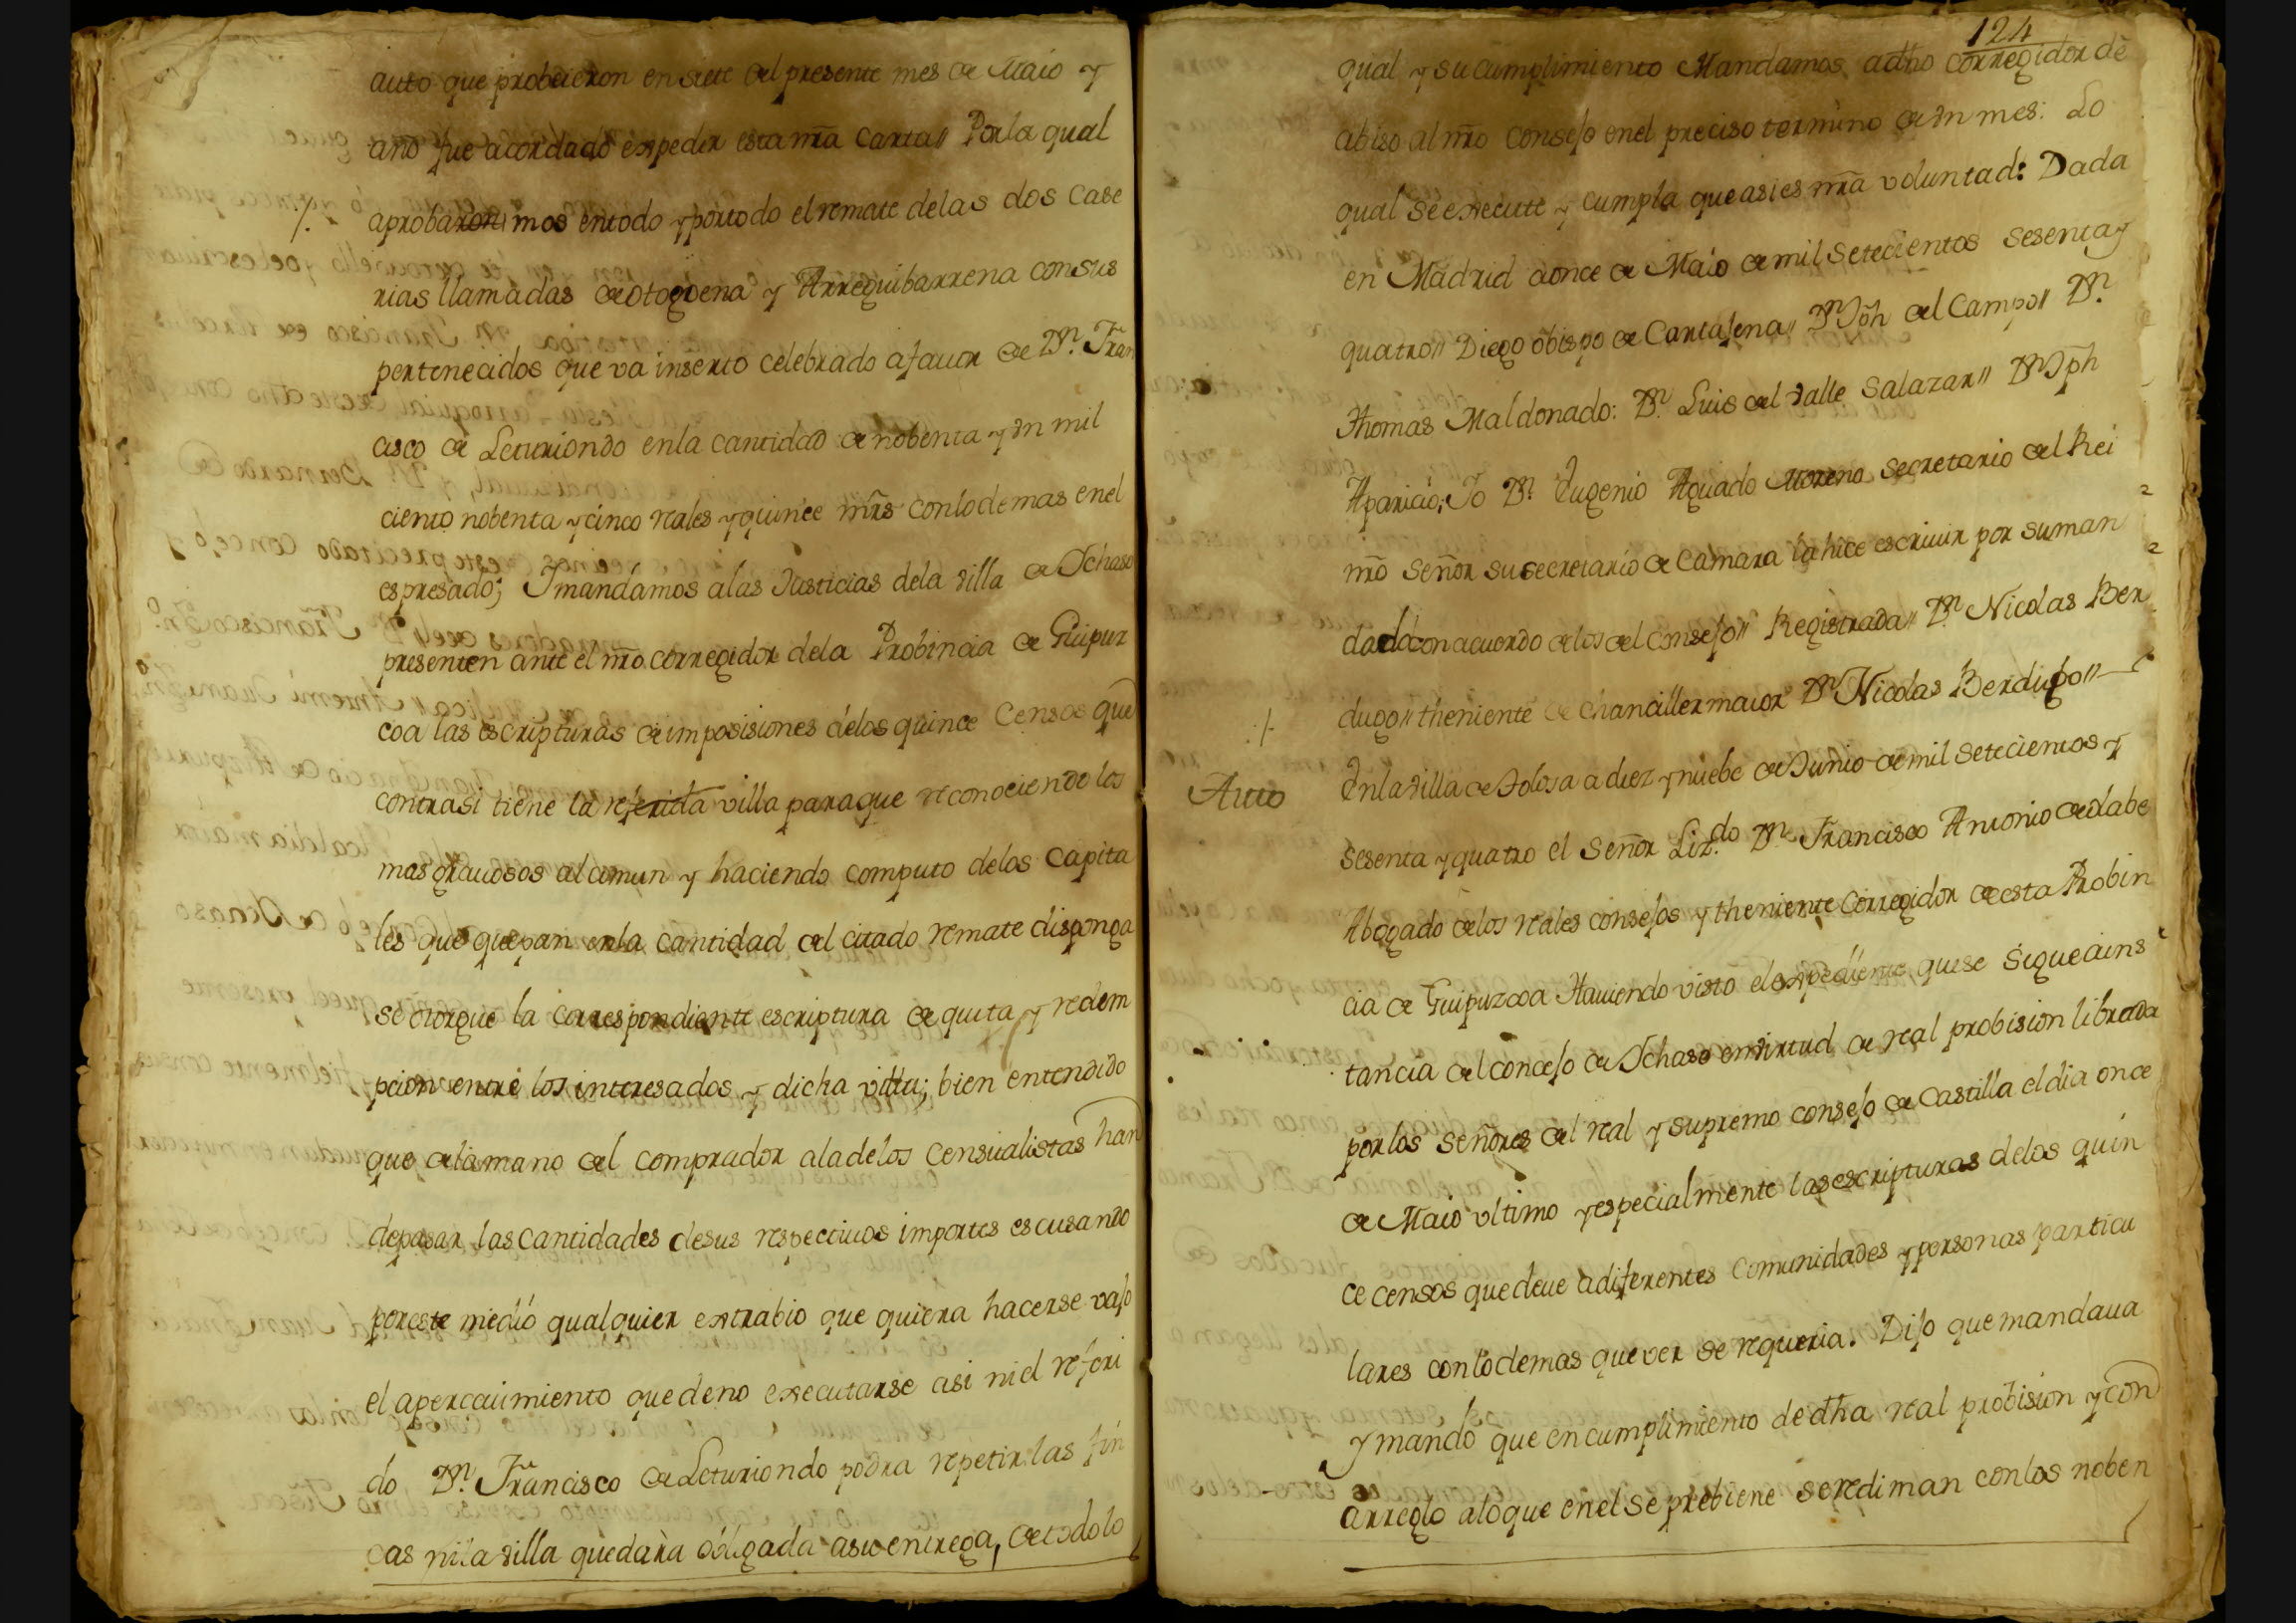 auto que probeieron en siete del presente mes de Maio y
año fue acordado expedir esta nra carta// Por la qual
aprobaron mos entodo yportodo el remate delas dos case
rias llamadas de Otogoena y Arreguibarrena consus
pertenecidos que va inserto celebrado afauor de Dn. Fran
cisco de Leturiondo enla cantidad de nobenta y Vn mil
ciento nobenta y cinco reales y quince mrs conlodemas enel
espresado; Y mandamos alas Justicias dela Villa de Ychaso
presenten ante el nro corregidor dela Probincia de Guipuz
coa las escripturas de imposisiones delos quince Censos que
contrasi tiene la referida villa paraque reconociendo los
mas grauosos al comun y haciendo computo delos Capita
les que quepan enla cantidad del citado remate disponga
se otorgue la correspondiente escriptura de quita y redem
pcion entre los interesados y dicha villa; bien entendido
que dela mano del comprador aladelos Censualistas han
depasar las cantidades desus respectiuos importes escusando
poreste medio qualquier extrabio que quiera hacerse vajo
el aperceuimiento que deno executarse asi ni el referi
do Dn. Francisco de Leturiondo podra repetir las fin
cas nila Villa quedarà obligada asu entrega, detodolo
124
qual y su cumplimiento Mandamos adho corregidor dè
abiso al nro Consejo enel preciso termino de Vn mes: Lo
qual se execute y cumpla que asi es nra voluntad: Dada
en Madrid aonce de Maio de mil Setecientos sesenta y
quatro// Diego obispo de Cartajena// Dn Jph del Campo// Dn.
Thomas Maldonado: Dn. Luis del Valle Salazar// Dn Jph
Aparicio; Yo Dn. Eugenio Aguado Moreno Secretario del Rei
nro Señor su secretario de Camara la hice escriuir por suman
dado con acuordo delos del Consejo// Registrada// Dn. Nicolas Ber
dugo// theniente de Chanciller maior Dn Nicolas Berdugo//
Auto
Enla Villa de Tolosa a diez y nuebe de Junio de mil setecientos y
sesenta y quatro el Señor Liz.do Dn. Francisco Antonio de Olabe
Abogado delos reales consejos y theniente Corregidor de esta Probin
cia de Guipuzcoa Hauiendo visto el expediente quese Sigue àins
tancia del concejo de Ychaso en virtud de real probision librada
por los señores del real y supremo consejo de Castilla el dia once
de Maio vltimo y especialmente las escripturas delos quin
ce censos que deue a diferentes Comunidades y personas particu
lares con lo demas que ver se requeria. Dijo que mandaua
y mandò que en cumplimiento de dha real probision y con
arreglo alo que en el se prebiene se rediman conlos noben